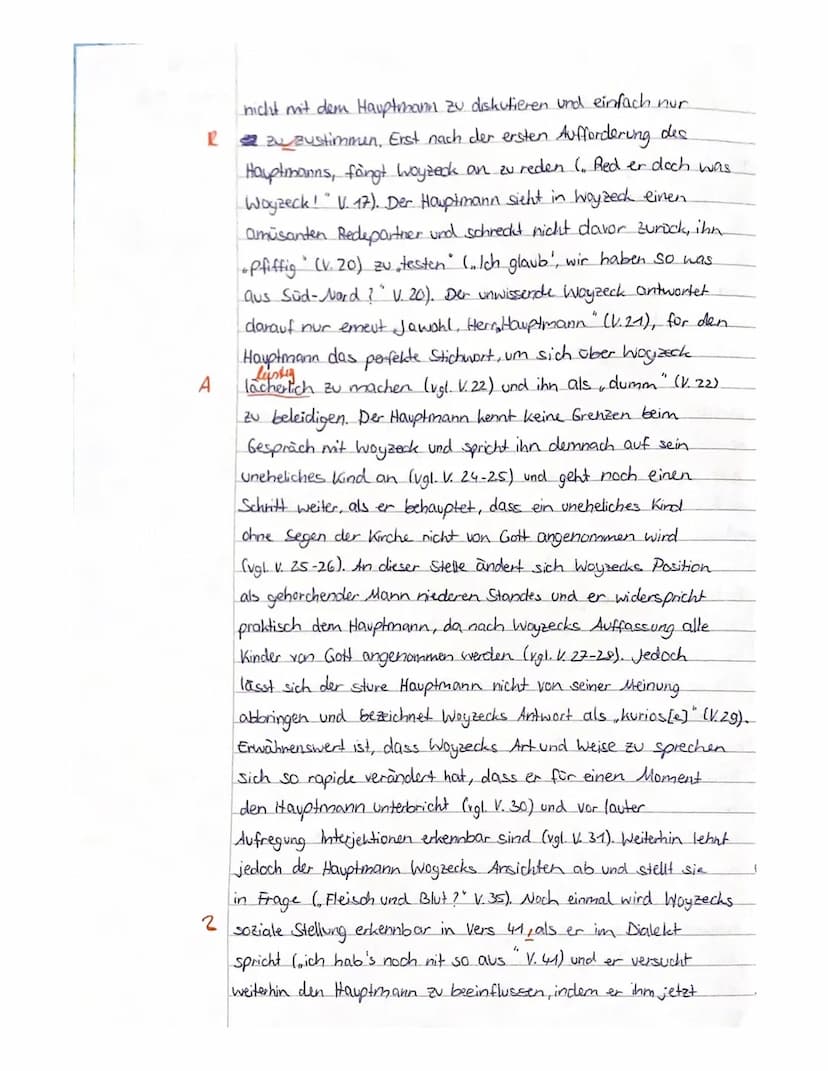 nicht mit dem Hauptmann zu diskutieren und einfach nur
R zu zustimmen. Erst nach der ersten Aufforderung des
Hauptmanns, fängt Woyzeck an zu reden („Red er doch was
Woyzeck!" V. 17). Der Hauptmann sieht in Woyzeck einen
amüsanten Redepartner und schreckt nicht davor zurück, ihn
„pfiffig" (V. 20) zu „testen" („Ich glaub', wir haben so was
aus Süd-Nord?" V. 20). Der unwissende Woyzeck antwortet
darauf nur erneut „Jawohl, Herr Hauptmann" (V. 21), für den
Hauptmann das perfekte Stichwort, um sich über Woyzeck
lustig
A lächerlich zu machen (vgl. V. 22) und ihn als „dumm" (V. 22)
zu beleidigen. Der Hauptmann kennt keine Grenzen beim
Gespräch mit Woyzeck und spricht ihn demnach auf sein
uneheliches Kind an (vgl. V. 24-25) und geht noch einen
Schritt weiter, als er behauptet, dass ein uneheliches Kind
ohne Segen der Kirche nicht von Gott angenommen wird
(vgl. V. 25-26). An dieser Stelle ändert sich Woyzecks Position
als gehorchender Mann niederen Standes und er widerspricht
praktisch dem Hauptmann, da nach Woyzecks Auffassung alle
Kinder von Gott angenommen werden (vgl. V. 27-28). Jedoch
lässt sich der sture Hauptmann nicht von seiner Meinung
abbringen und bezeichnet Woyzecks Antwort als „kurios[e]" (V. 29).
Erwähnenswert ist, dass Woyzecks Art und Weise zu sprechen
sich so rapide verändert hat, dass er für einen Moment
den Hauptmann unterbricht (vgl. V. 30) und vor lauter
Aufregung Interjektionen erkennbar sind (vgl. V. 31). Weiterhin lehnt
jedoch der Hauptmann Woyzecks Ansichten ab und stellt sie
in Frage („Fleisch und Blut?" V. 35). Noch einmal wird Woyzecks
Z soziale Stellung erkennbar in Vers 41, als er im Dialekt
spricht („ich hab's noch nit so aus" V. 41) und er versucht
weiterhin den Hauptmann zu beeinflussen, indem er ihm jetzt